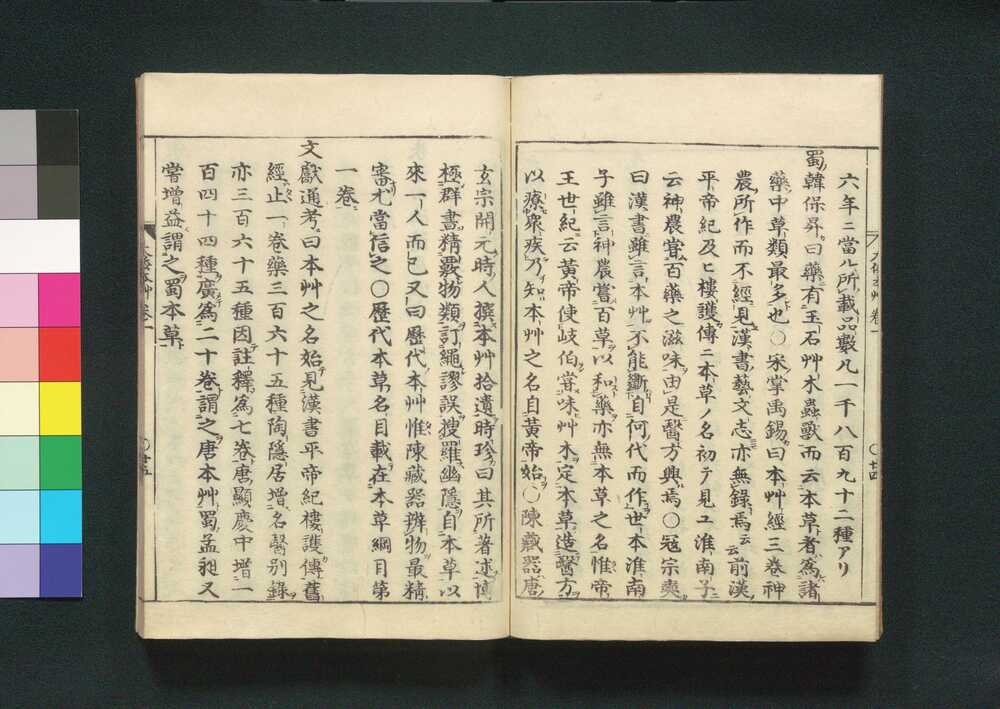 六年ニ當ル所載品數凡一千八百九十二種アリ
蜀韓保昇曰藥有玉石艸木蟲獸而云本草者爲諸
藥中草類最多也○宋掌禹錫曰本艸經三卷神
農所作而不經見漢書藝文志亦無錄焉云云前漢
平帝紀及ヒ樓護傳ニ本草ノ名初テ見ユ淮南子
云神農嘗百藥之滋味由是醫方興焉○冦宗奭
曰漢書雖言本艸不能斷自何代而作世本淮南
子雖言神農嘗百草以和藥亦無本草之名惟帝
王世紀云黃帝使岐伯嘗味艸木定本草造醫方
以療衆疾乃知本艸之名自黃帝始○陳藏器唐
大和本艸卷一
○廿四
玄宗開元時人撰本艸拾遺時珍曰其所著述博
極群書精覈物類訂繩謬誤搜羅幽隱自本草以
來一人而已又曰歷代本艸惟陳藏器辨物最精
審尤當信之○歷代本草名目載在本草綱目第
一卷
文獻通考曰本艸之名始見漢書平帝紀樓護傳舊
經止一卷藥三百六十五種陶隱居增名醫別錄
亦三百六十五種因註釋爲七卷唐顯慶中增一
百四十四種廣爲二十卷謂之唐本艸蜀孟昶又
嘗增益謂之蜀本草
大倭本艸卷一
○廿五